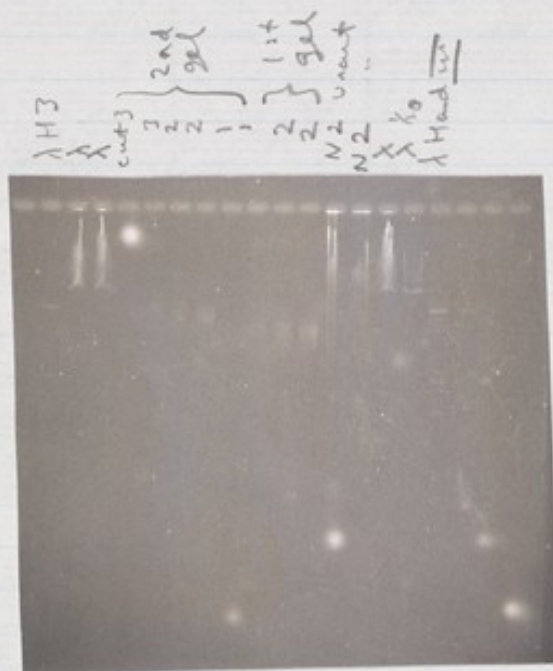 λ H3
λ
λ
cut 3
3
2
2
1
1
2nd
gel
2
2
1st
gel
N2 uncut
N2 "
λ
λ 1/10
λ Hand III